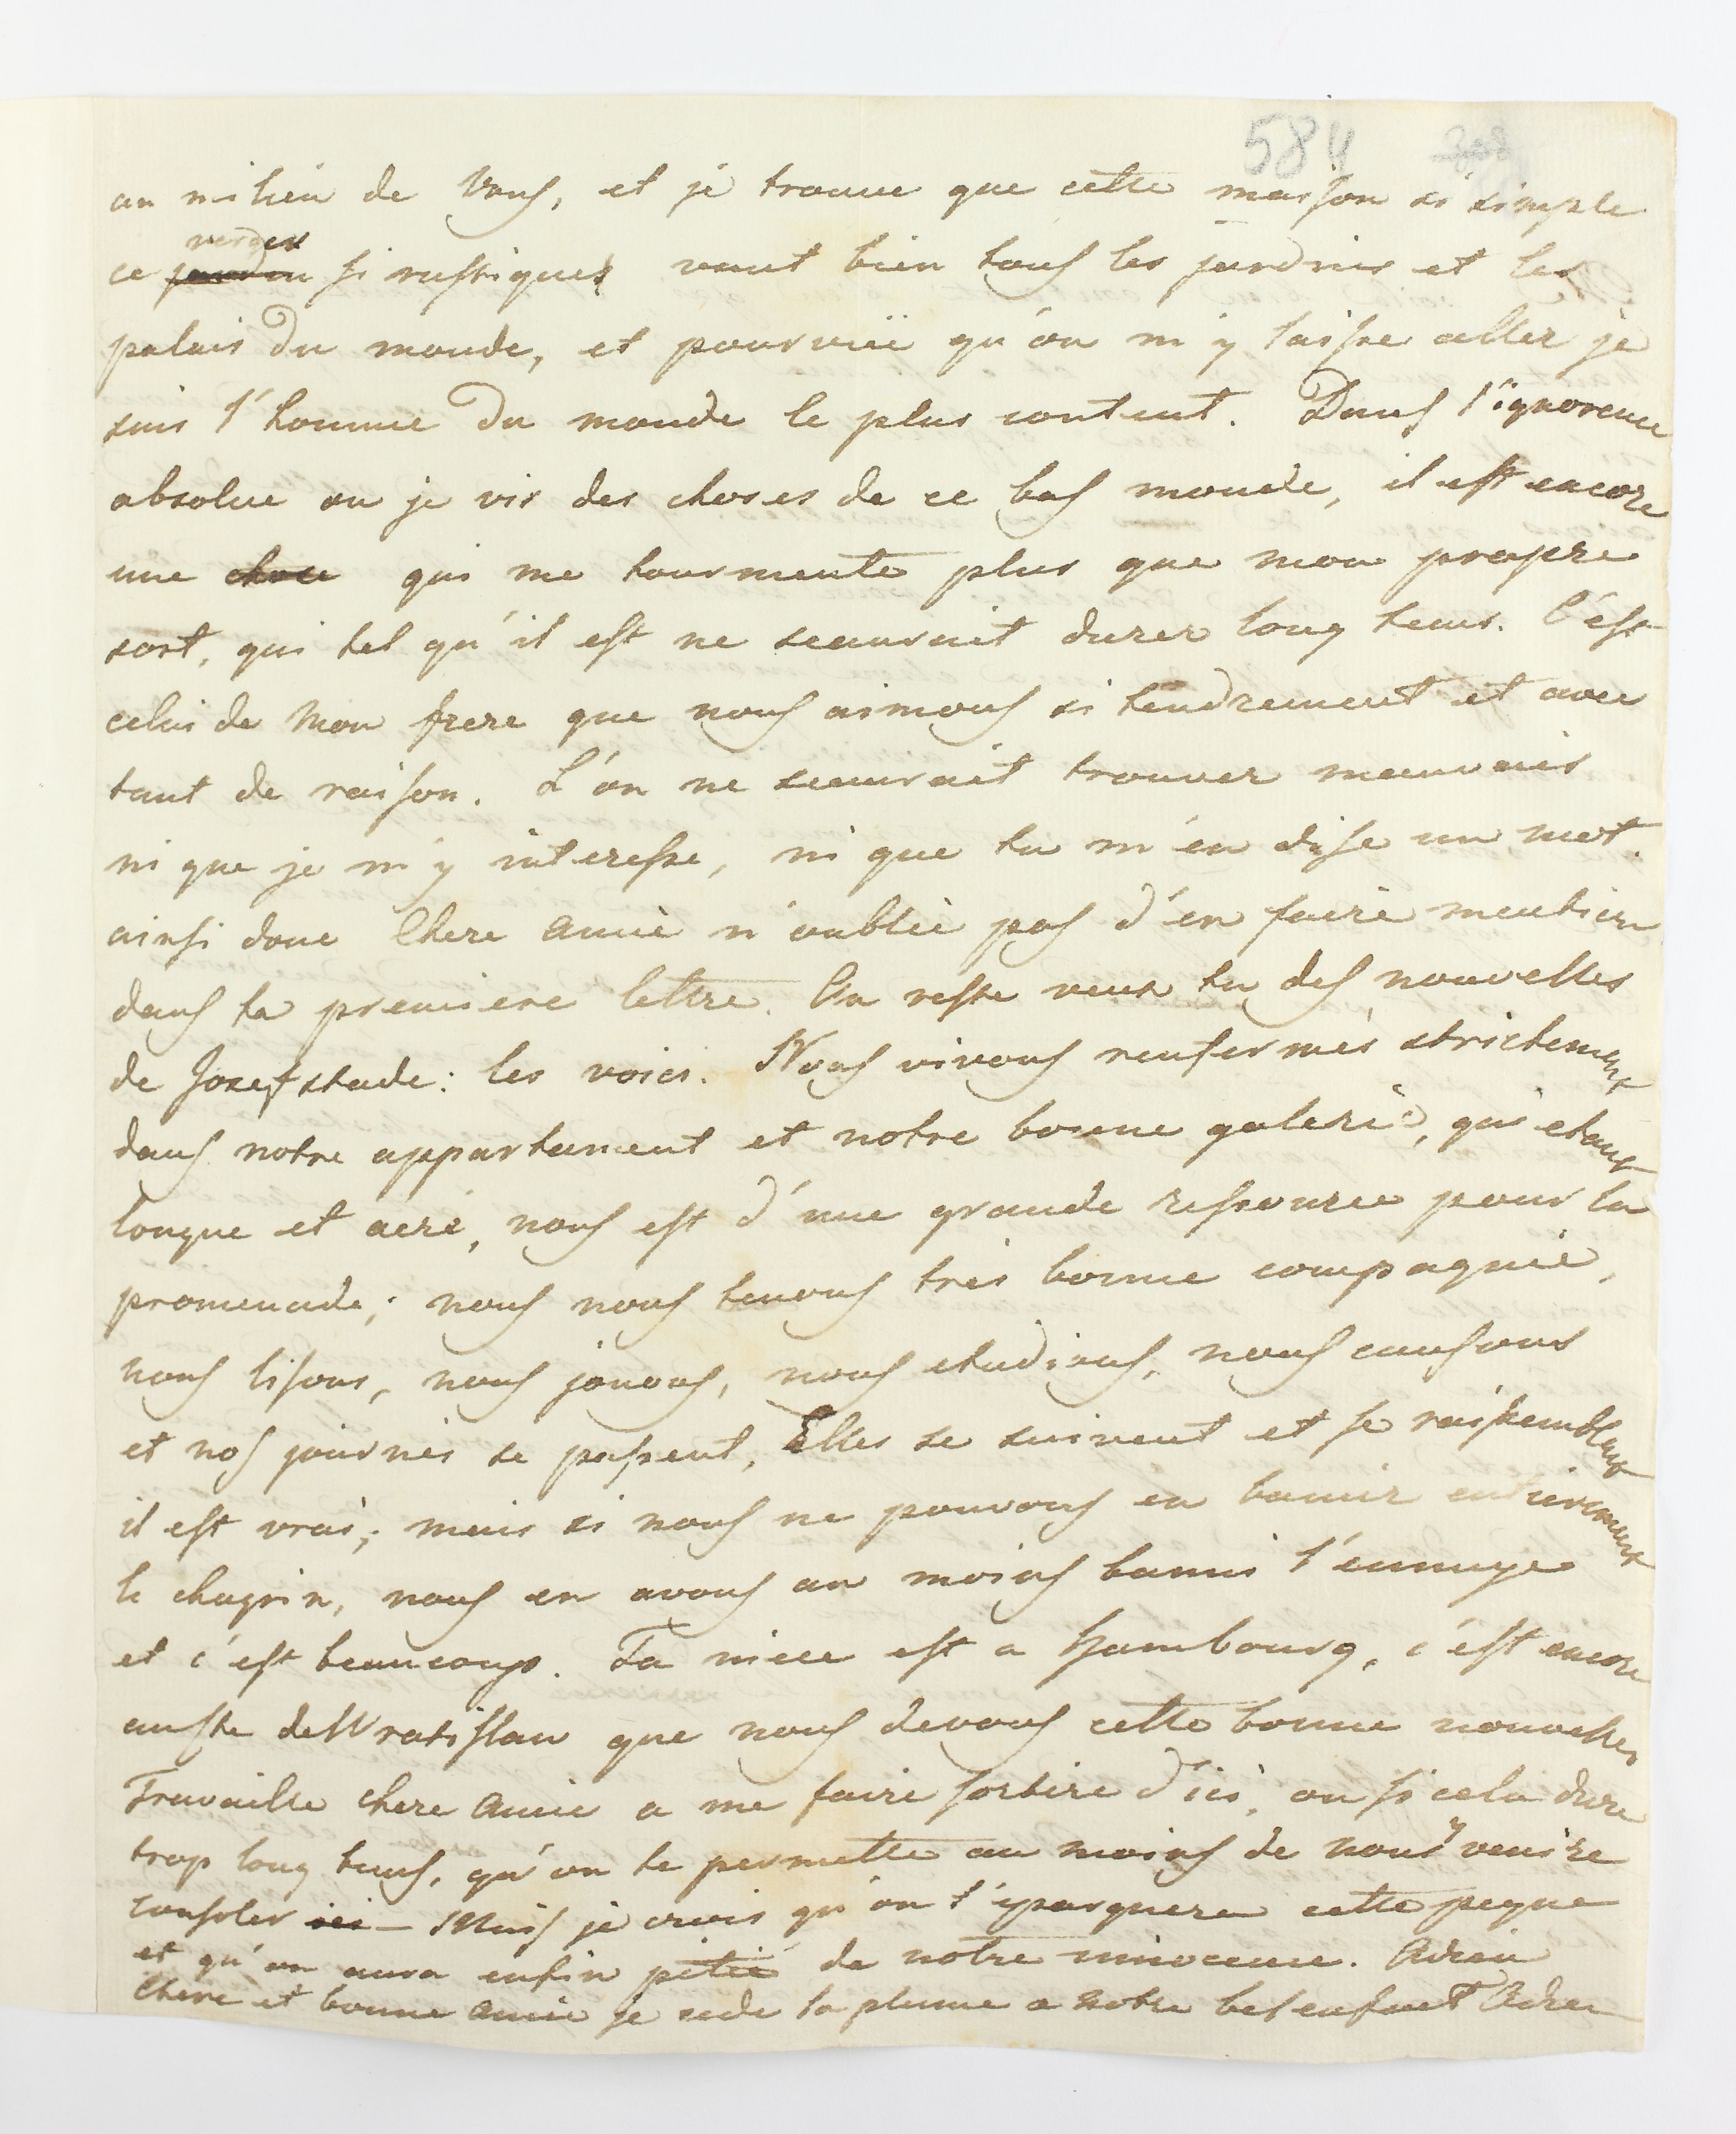 584
au milieu de Vous, et je trouve que cette maison si simple
verger
ce jardin si rustiques vaut bien tous les jardins et les
palais du monde, et pourvuë qu'on m'y laisse aller je
suis l'homme du monde le plus content. Dans l'ignorence
absolue ou je vis des choses de ce bas monde, il est encore
une chose qui me tourmente plus que mon propre
sort, qui tel qu'il est ne scauroit durer long tems. C'est
celui de Mon frere que nous aimons si tendrement et avec
tant de raison. L'on ne scauroit trouver mauvais
ni que je m'y interesse, ni que tu m'en dise un mot.
ainsi donc Chere Amie n'oublie pas d'en faire mention
dans ta premiere lettre. Au reste veux tu des nouvelles
de Josefstade: les voici. Nous vivons renfermés strictement
dans notre appartement et notre bonne galerie, qui etant
longue et aeré, nous est d'une grande ressource pour la
promenade; nous nous tenons très bonne compagnie,
nous lisons, nous jouons, nous etudions, nous causons
et nos journés se passent, Elles se suivent et se raissemblent
il est vrai; mais si nous ne pouvons en bannir entierement
le chagrin, nous en avons au moins banni l'ennuye
et c'est beaucoup. Ta niece est a Hambourg, c'est encore
au Cte de Wratislau que nous devons cette bonne nouvelle,
Travaille Chere Amie a me faire sortire d'ici, ou si cela dure
trop long tems, qu'on te permette au moins de nous y venire
consoler ici — Mais je crois qu'on t'epargnera cette pegne
et qu'on aura enfin pitié de notre innocence. Adieu
Chere et bonne Amie je cede la plume a notre bel enfant Adieu